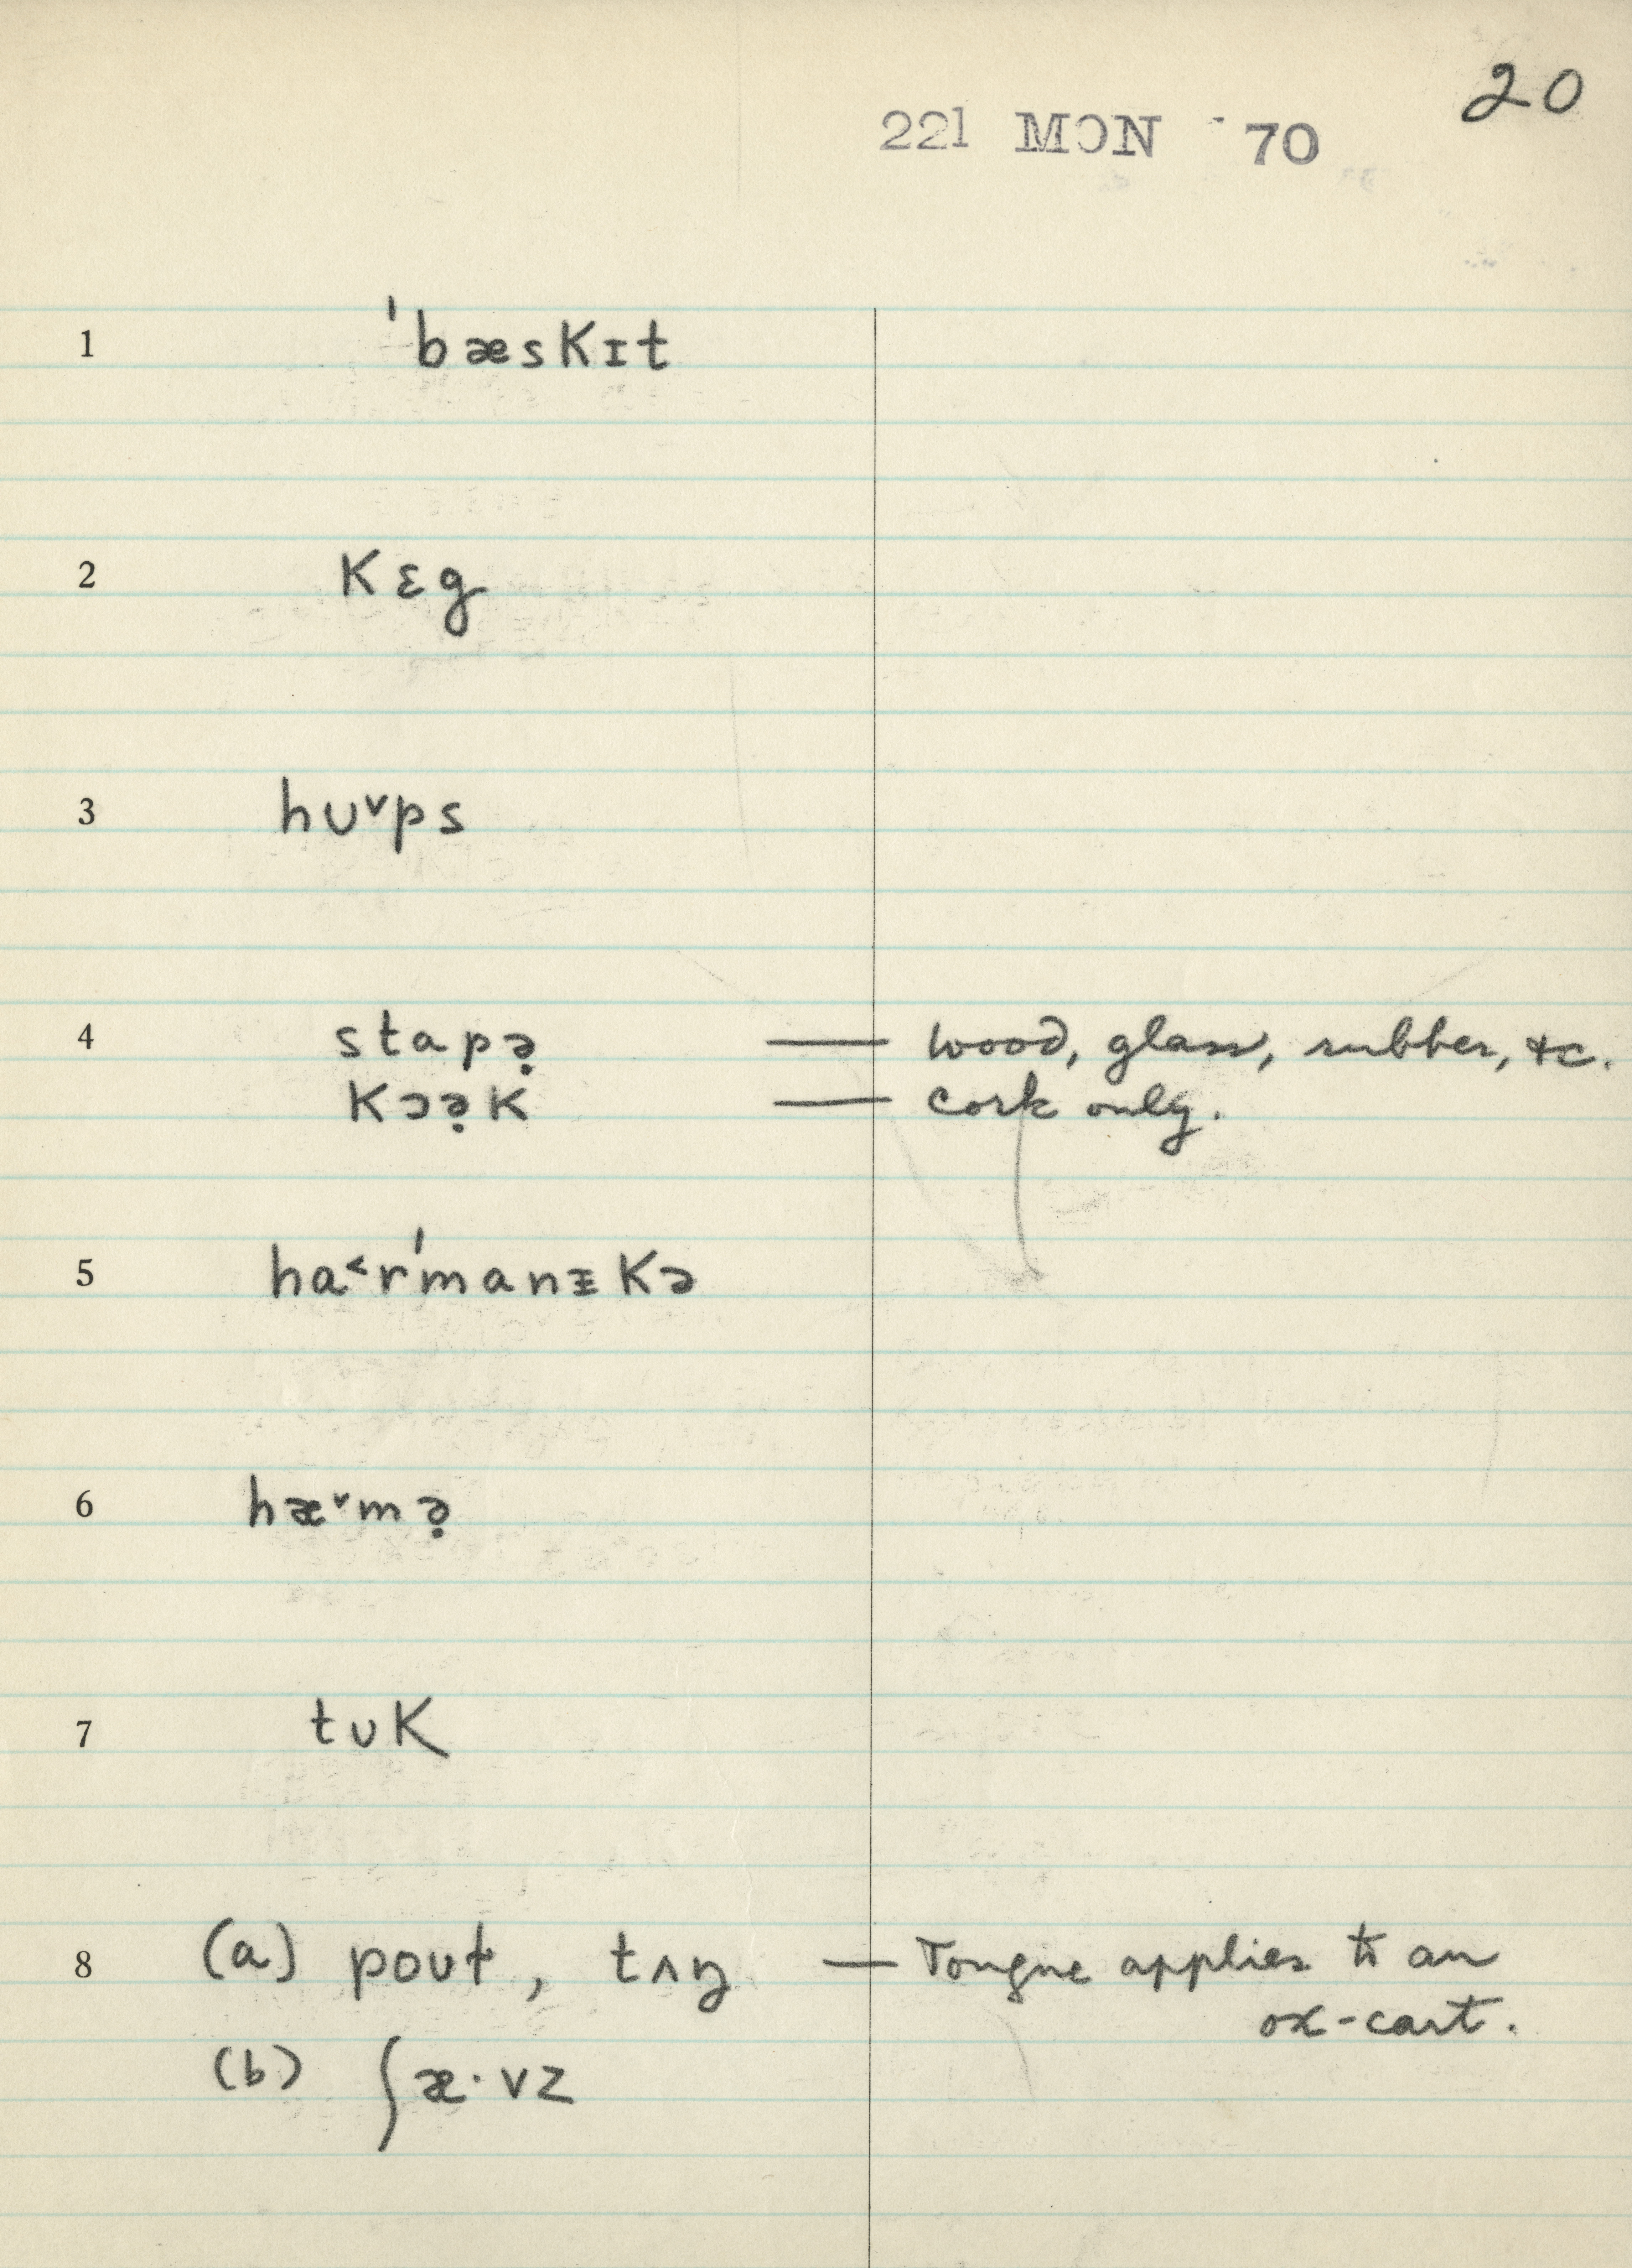 20
221 MON 70
1 ˈbæskɪt
2 kɛg
3 hʊ˅ps
4 stapə̣ — wood, glass, rubber, &c.
kɔə̣k — cork only.
5 ha˂rˈmanɪ̵kə
6 hæ˅mə̣
7 tʊk
8 (a) poʊt̬, tʌŋ — Tongue applies to an
ox-cart.
(b) ʃæ·vz